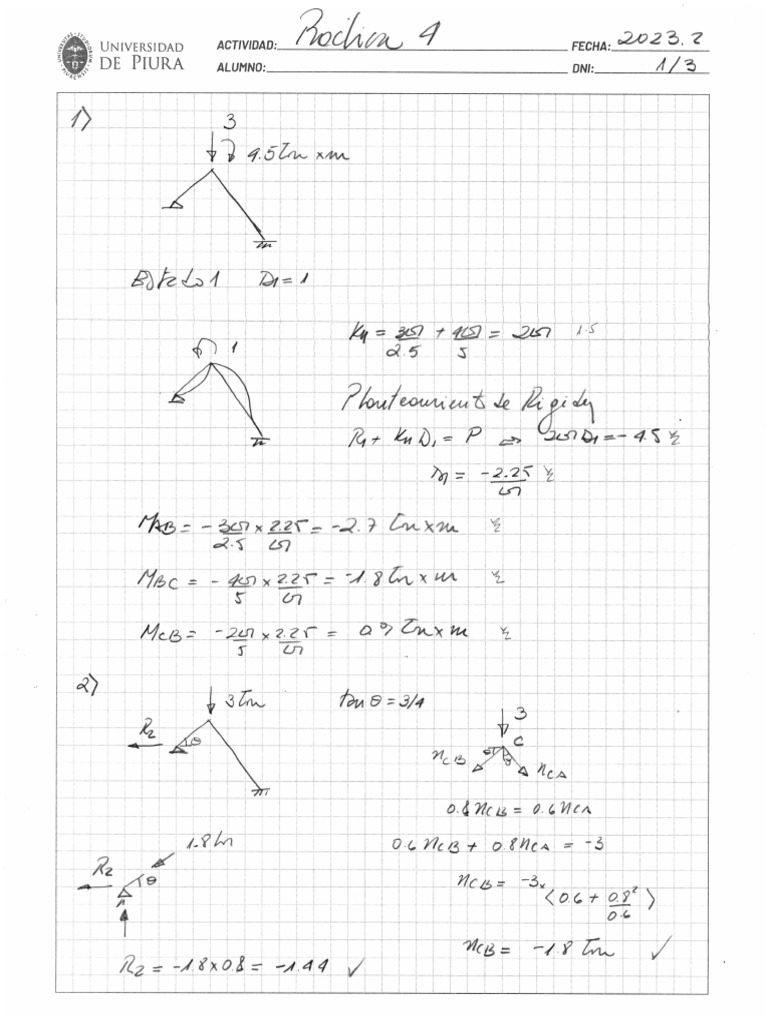 UNIVERSIDAD DE PIURA
ACTIVIDAD: Práctica 4 FECHA: 2023.2
ALUMNO: DNI: 1/3
1)
3
4.5 Tn x m
Estado 1 D1 = 1
1
K11 = 3EI/2.5 + 4EI/5 = 2EI 1.5
Planteamiento de Rigidez
R1 + K11 D1 = P ⇒ 2EI D1 = -4.5 ½
D1 = -2.25/EI ½
MAB = -3EI/2.5 x 2.25/EI = -2.7 Tn x m ½
MBC = -4EI/5 x 2.25/EI = -1.8 Tn x m ½
MCB = -2EI/5 x 2.25/EI = 0.9 Tn x m ½
2)
3 Tn
tan θ = 3/4
R2
θ
3
C
nCB
nCA
0.8 nCB = 0.6 nCA
0.6 nCB + 0.8 nCA = -3
1.8 Tn
R2
θ
nCB = -3 x (0.6 + 0.8²/0.6)
nCB = -1.8 Tn ✓
R2 = -1.8 x 0.8 = -1.44 ✓